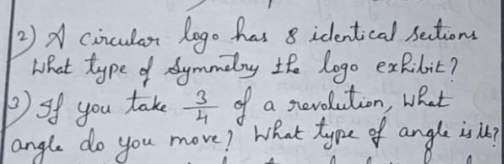 2) A circular logo has 8 identical sections
What type of symmetry the logo exhibit?
3) If you take 3/4 of a revolution, what
angle do you move? What type of angle is it?